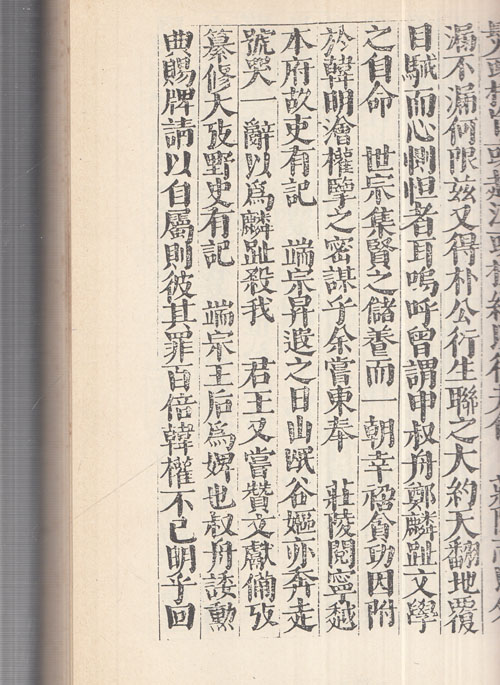 漏不漏何限玆又得朴公衍生聯之大約天翻地覆
目駴而心惻怛者耳嗚呼曾謂申叔舟鄭麟趾文學
之自命 世宗集賢之儲養而一朝幸禍貪功因附
於韓明澮權擥之密謀乎余嘗東奉 莊陵閱寧越
本府故吏有記 端宗昇遐之日山氓谷嫗亦奔走
號哭一辭以爲麟趾殺我 君王又嘗贊文獻備攷
纂修大攷野史有記 端宗王后爲婢也叔舟諉勳
典賜牌請以自屬則彼其罪百倍韓權不已明乎回